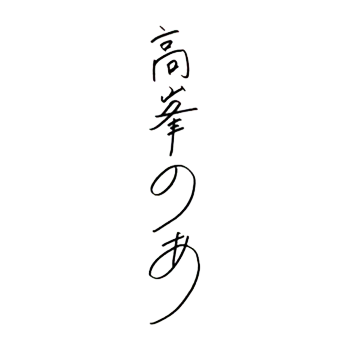 高峯のあ